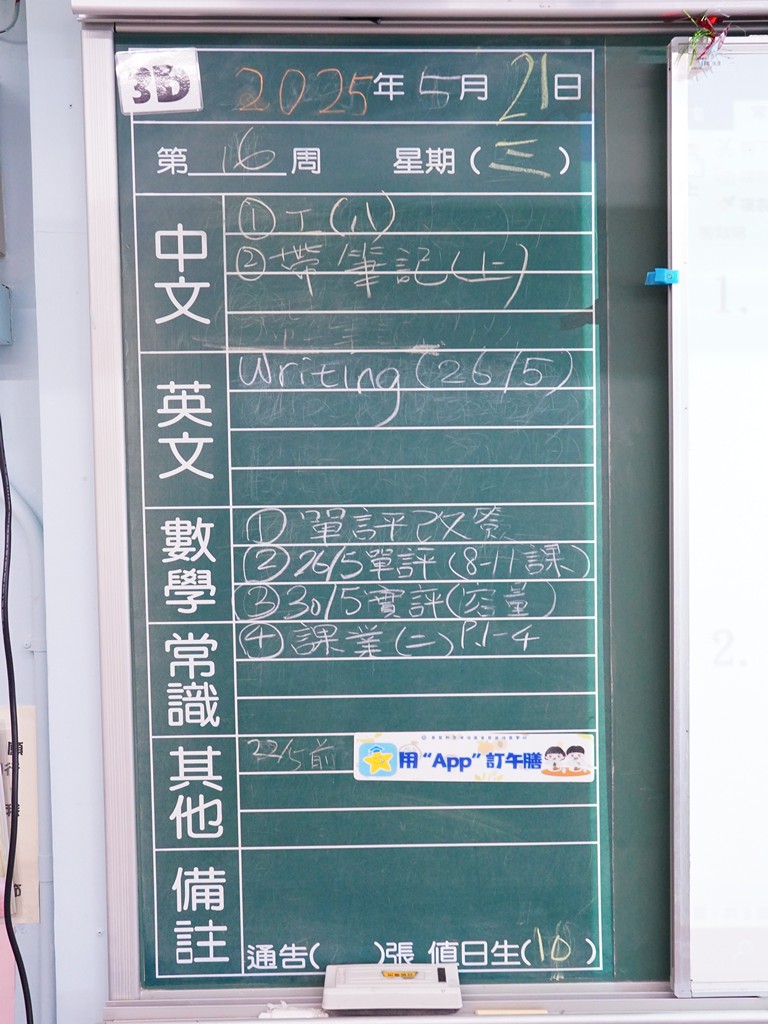 3D
2025年5月21日
第16周 星期(三)
中文
①工(八)
②帶筆記(上)
英文
Writing (26/5)
數學
①單評改簽
②26/5單評(8-11課)
③30/5實評(容量)
④課業(二)P.1-4
常識
其他
22/5前
用“App”訂午膳
備註
通告( )張 值日生(10)
1.
2.